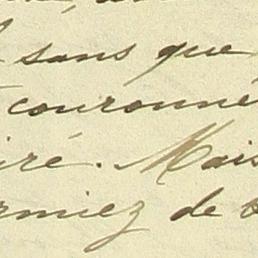 sans que
couronné
iré. Mais
rmiez de